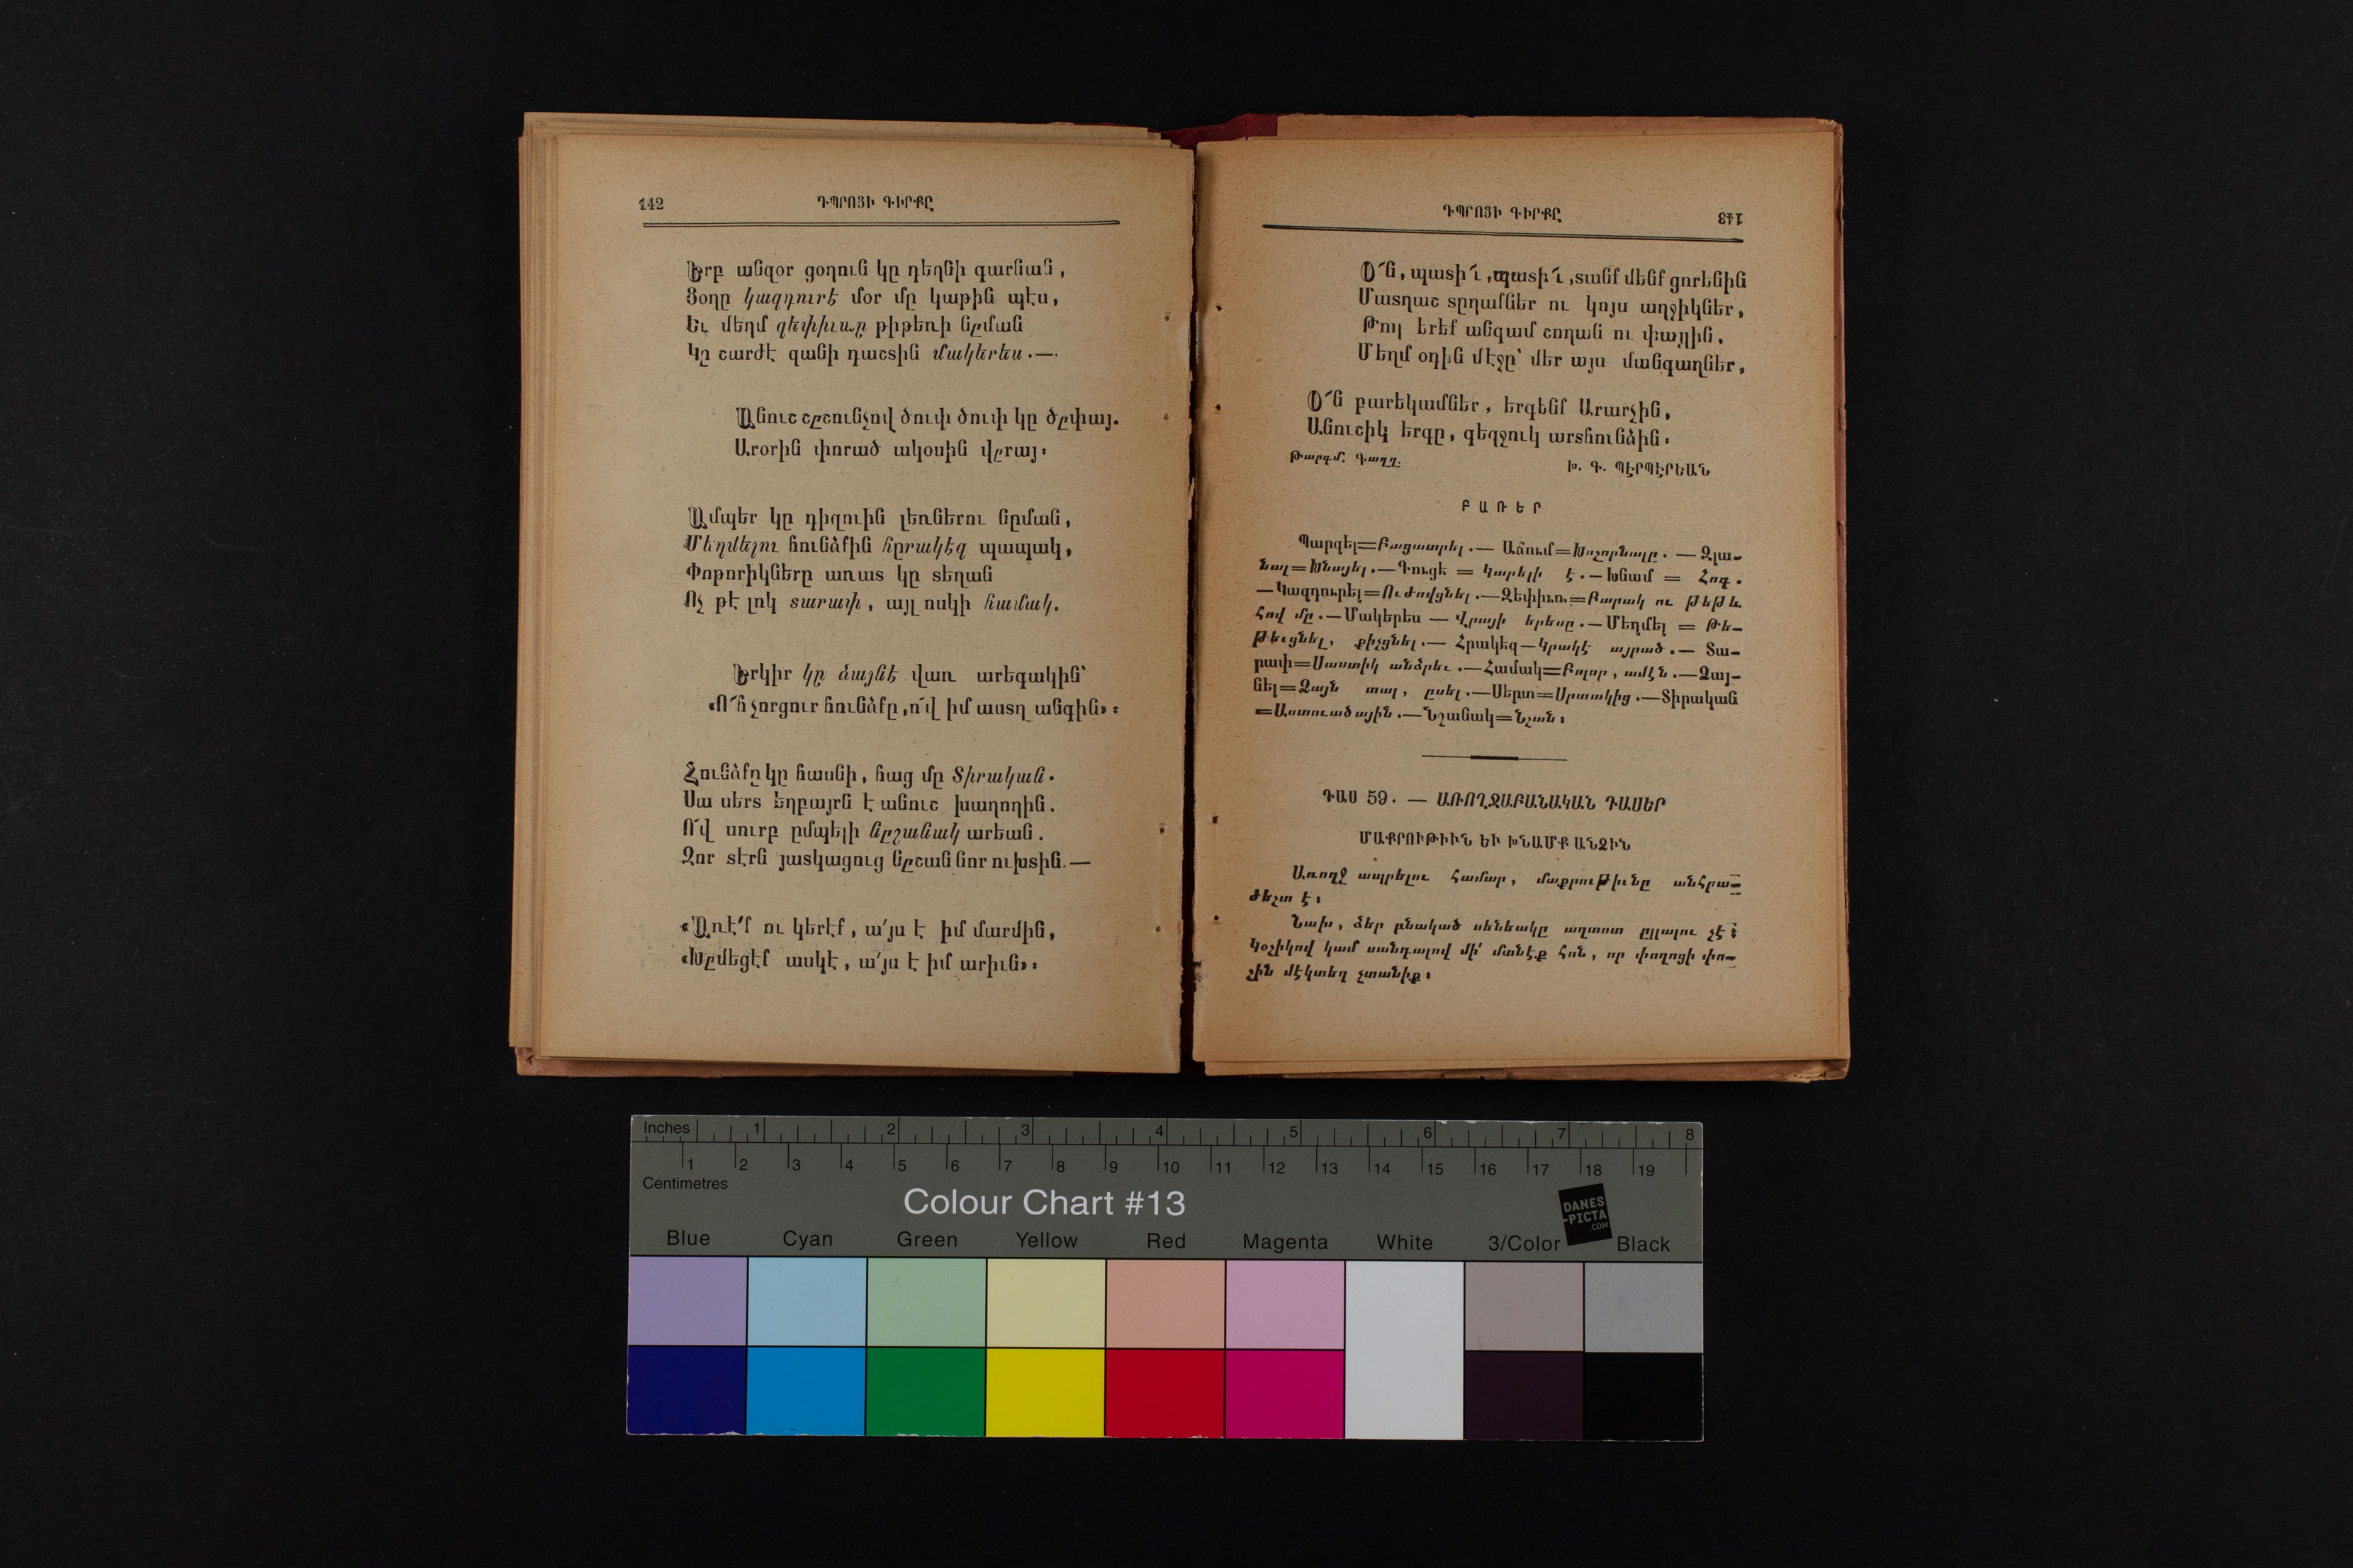 142
ԴՊՐՈՑԻ ԳԻՐՔԸ
Երբ անզօր ցօղուն կը դեղնի գարնան,
Ցօղը կազդուրէ մօր մը կաթին պէս,
Եւ մեղմ զեփիւռը թիթեռի նըման
Կը շարժէ զանի դաշտին մակերես.—
Անուշ շըշունչով ծուփ ծուփ կը ծըփայ.
Արօրին փորած ակօսին վըրայ։
Ամպեր կը դիզուին լեռներու նըման,
Մեղմելու հունձքին հըրակէզ պապակ,
Փոթորիկները առատ կը տեղան
Ոչ թէ լոկ տարափ, այլ ոսկի համակ.
Երկիր կը ձայնէ վառ արեգակին՝
«Ո՜հ չորցուր հունձքը, ո՜վ իմ աստղ անգին»։
Հունձքը կը հասնի, հաց մը Տիրական.
Սա սերտ եղբայրն է անուշ խաղողին.
Ո՜վ սուրբ ըմպելի նըշանակ արեան.
Զոր տէրն յատկացուց նըշան նոր ուխտին.—
«Առէ՛ք ու կերէք, ա՛յս է իմ մարմին,
«Խըմեցէք ասկէ, ա՛յս է իմ արիւն»։
ԴՊՐՈՑԻ ԳԻՐՔԸ
143
Օ՜ն, պատի՜ւ, պատի՜ւ, տանք մենք ցորենին
Մատղաշ տըղաքներ ու կոյս աղջիկներ,
Թող երեք անգամ շողան ու փայլին,
Մեղմ օդին մէջը՝ մեր այս մանգաղներ,
Օ՜ն բարեկամներ, երգենք Արարչին,
Անուշիկ երգը, գեղջուկ արտհունձին։
Թարգմ. Գաղղ.
Խ. Գ. ՊԷՐՊԷՐԵԱՆ
ԲԱՌԵՐ
Պարզել=Բացատրել.— Աճում=Խոշորնալը. — Զլա-
նալ=Խնայել.—Գուցէ = Կարելի է.—Խնամ = Հոգ.
—Կազդուրել=Ուժովցնել.—Զեփիւռ=Բարակ ու թեթև
հով մը.—Մակերես — Վրայի երեսը.—Մեղմել = Թե-
թեւցնել, քիչցնել.— Հրակեզ—Կրակէ այրած.— Տա-
րափ=Սաստիկ անձրեւ.—Համակ=Բոլոր, ամէն.—Ձայ-
նել=Ձայն տալ, ըսել.—Սերտ=Սրտակից.—Տիրական
=Աստուածային.—Նշանակ=Նշան։
ԴԱՍ 59. — ԱՌՈՂՋԱԲԱՆԱԿԱՆ ԴԱՍԵՐ
ՄԱՔՐՈՒԹԻՒՆ ԵՒ ԽՆԱՄՔ ԱՆՁԻՆ
Առողջ ապրելու համար, մաքրութիւնը անհրա-
ժեշտ է։
Նախ, ձեր բնակած սենեակը աղտոտ ըլլալու չէ։
Կօշիկով կամ սանդալով մի՛ մտնէք հոն, որ փողոցի փո-
շին մէկտեղ չտանիք։
Inches 1 2 3 4 5 6 7 8
1 2 3 4 5 6 7 8 9 10 11 12 13 14 15 16 17 18 19
Centimetres
Colour Chart #13
DANES
-PICTA
.COM
Blue Cyan Green Yellow Red Magenta White 3/Color Black